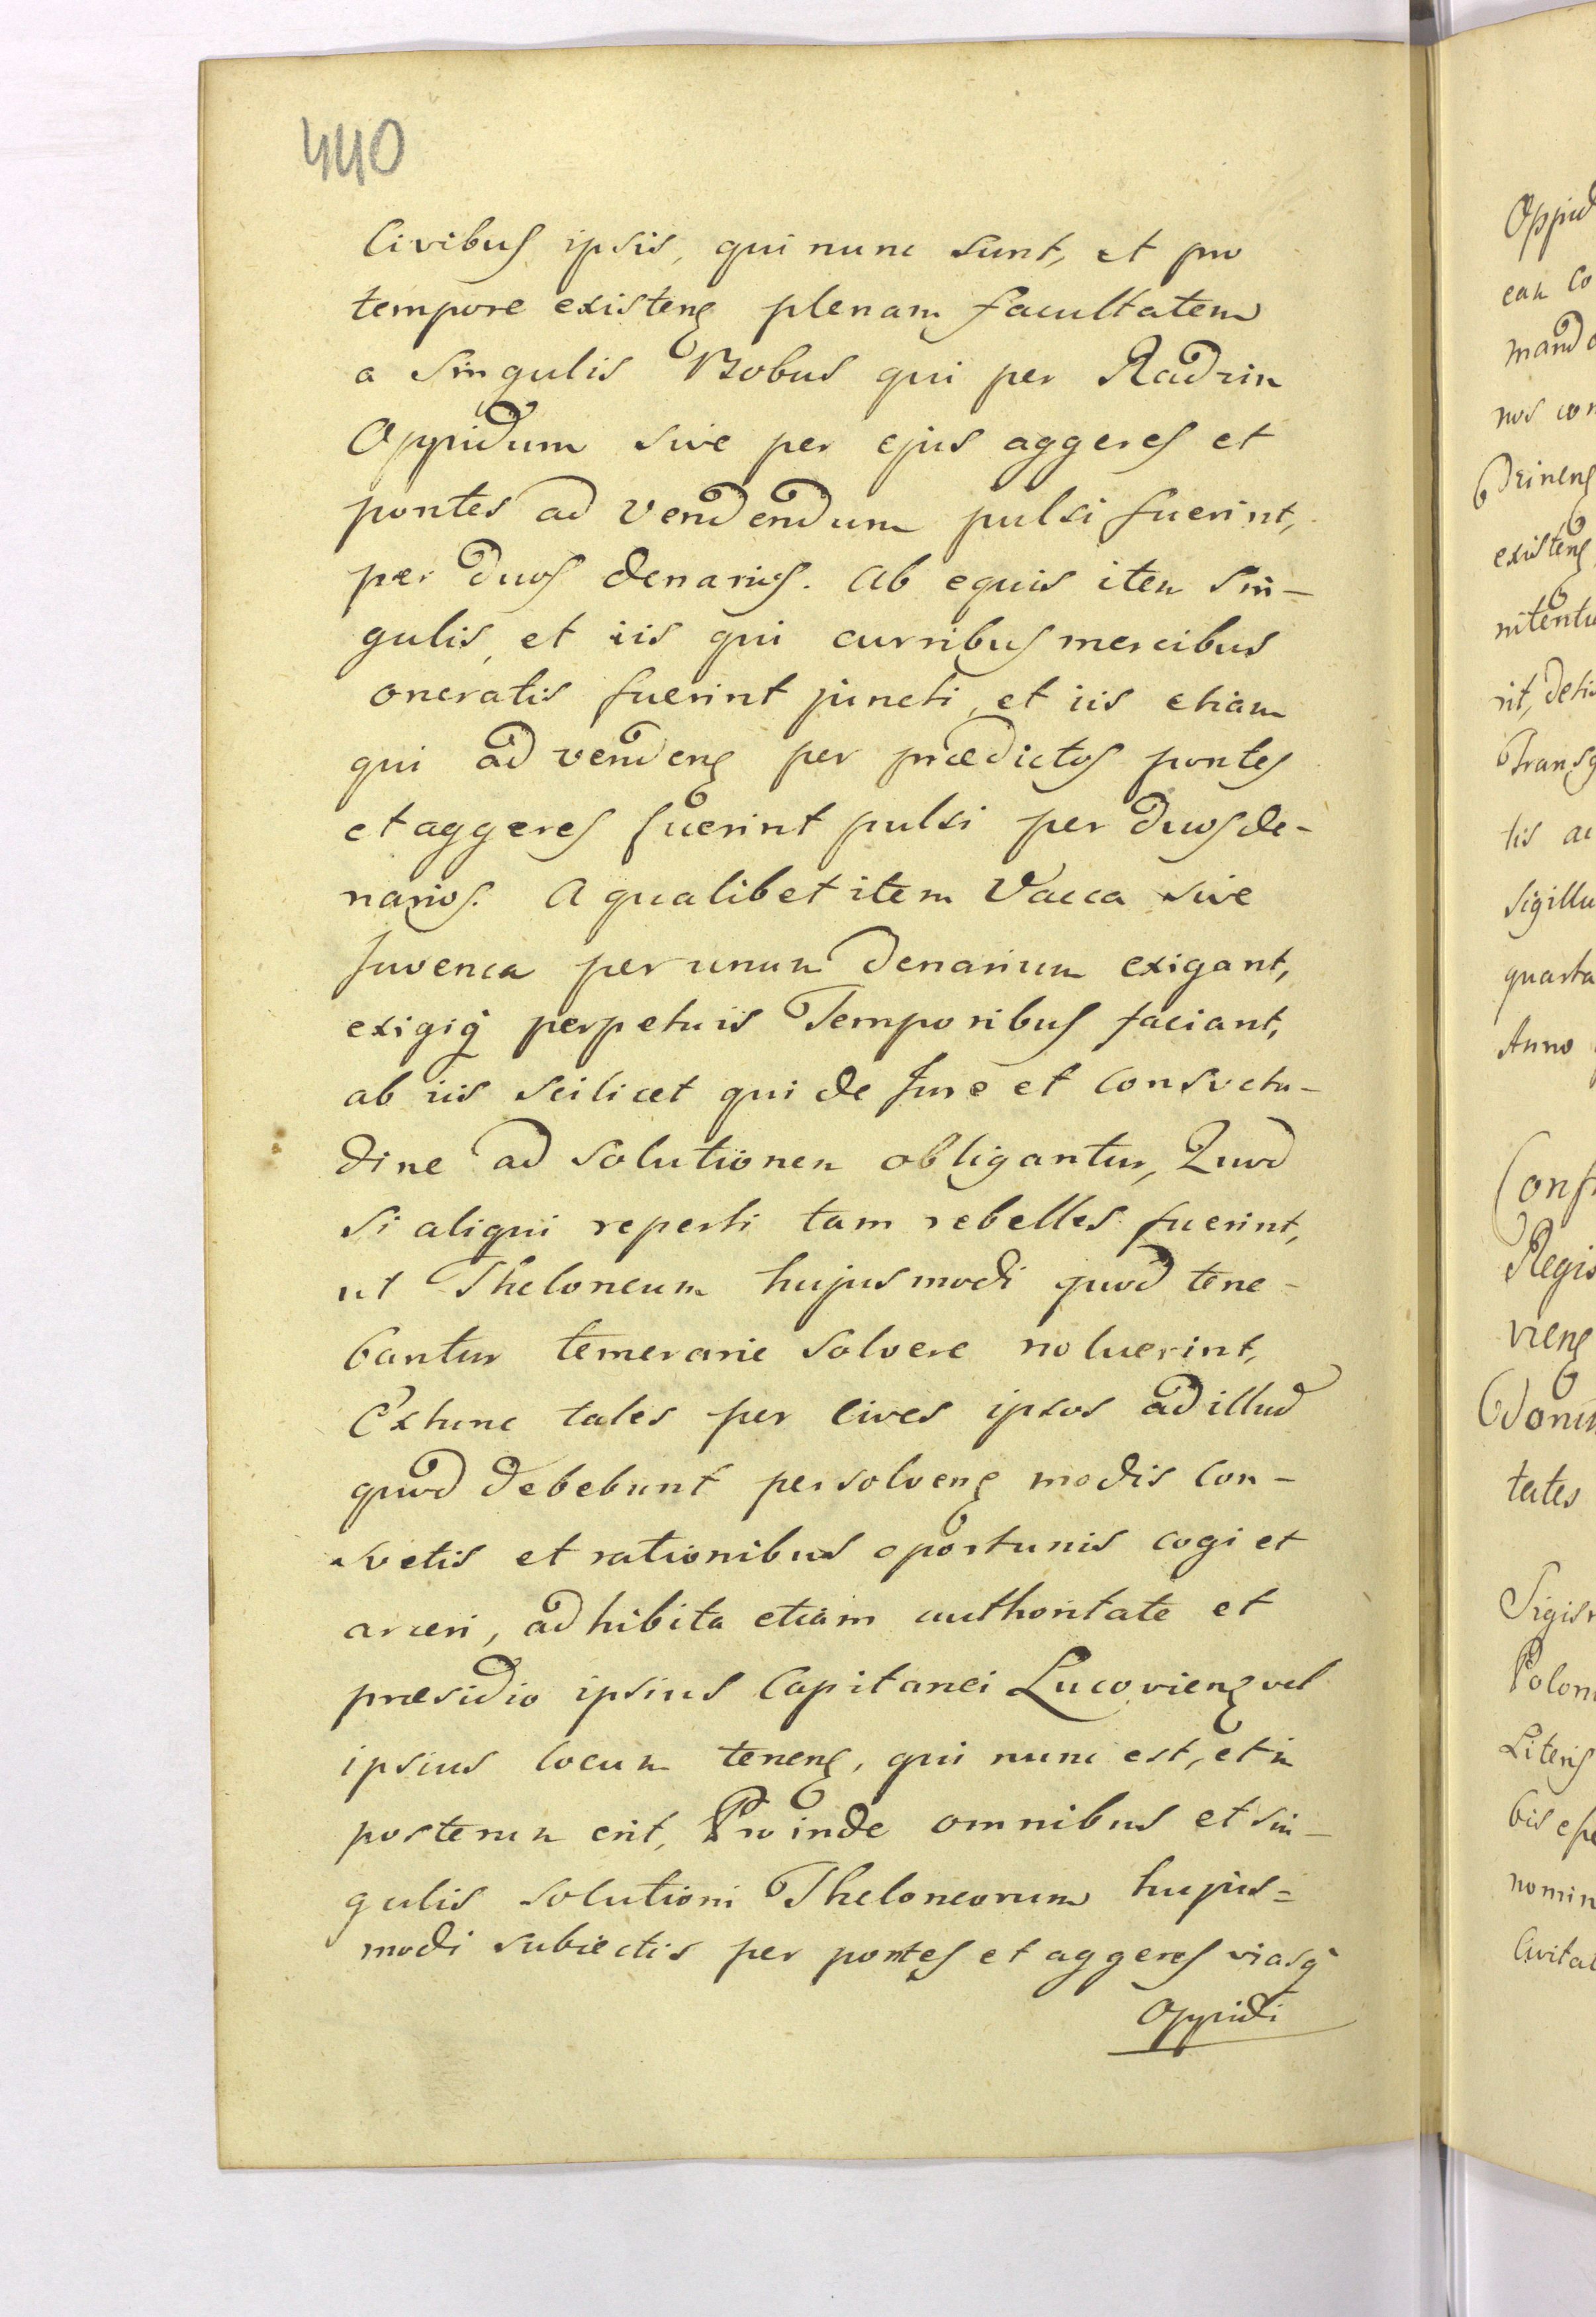 440
Civibus ipsis, qui nunc sunt, et pro
tempore existenꝫ plenam facultatem
a Singulis Bobus qui per Radzin
Oppidum sive per ejus aggeres et
pontes ad vendendum pulsi fuerint,
per duos denarios. Ab equis item Sin-
gulis, et iis qui curribus mercibus
oneratis fuerint juncti, et iis etiam
qui ad vendenꝫ per prædictos pontes
et aggeres fuerint pulsi per duos de-
narios. A qualibet item Vacca sive
Juvenca per unum denarium exigant,
exigiq̃ perpetuis Temporibus faciant,
ab iis scilicet qui de Jure et Consvetu-
dine ad solutionem obligantur, Quod
si aliqui reperti tam rebelles fuerint,
ut Theloneum hujusmodi quod tene-
bantur temerarie solvere noluerint,
Extunc tales per cives ipsos ad illud
quod debebunt persolvenꝫ modis Con-
svetis et rationibus oportunis cogi et
arceri, adhibita etiam authoritate et
præsidio ipsius Capitanei Lucovienꝫ vel
ipsius locum tenenꝫ, qui nunc est, et in
posterum erit, Proinde omnibus et sin-
gulis solutioni Theloneorum hujus=
modi subiectis per pontes et aggeres viasq̃
Oppidi
Oppid
eam co
mand
nos con
existenꝫ
rit, deti
Transg
tis ac
Sigillu
quarta
Anno
Conf
Regis
vienꝫ
tates
Sigis
Polon
Literis
bis
nomin
Civitat